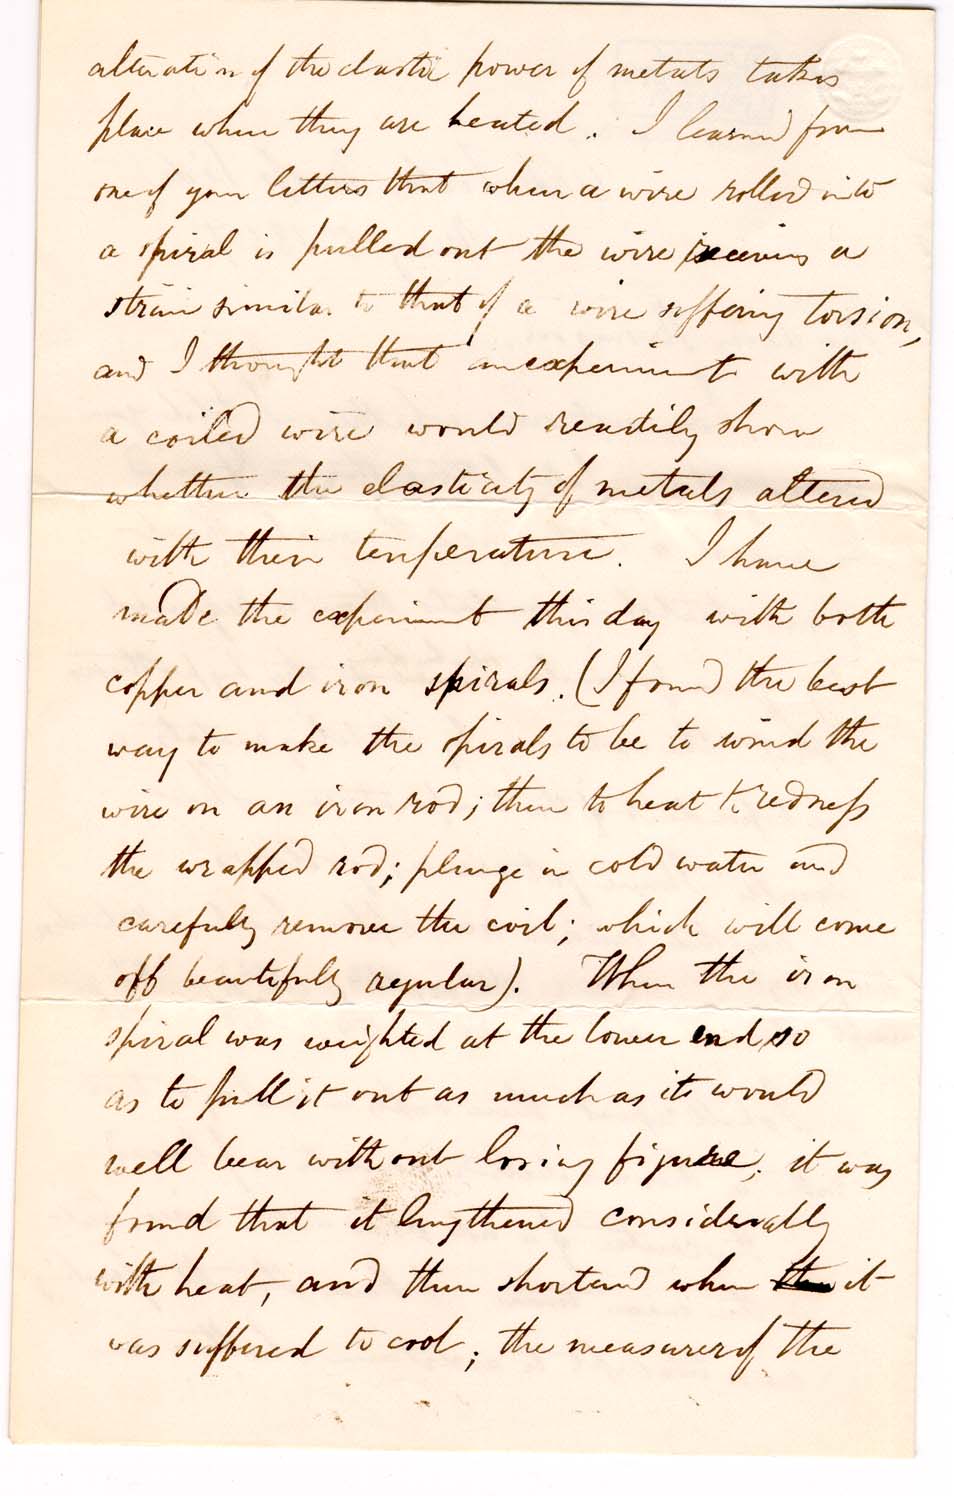 alteration of the elastic power of metals takes
place when they are heated. I learned from
one of your letters that when a wire rolled into
a spiral is pulled out the wire receives a
strain similar to that of a wire suffering torsion,
and I thought that an experiment with
a coiled wire would readily show
whether the elasticity of metals altered
with their temperature. I have
made the experiment this day with both
copper and iron spirals. (I found the best
way to make the spirals to be to wind the
wire on an iron rod; then to heat to redness
the wrapped rod; plunge in cold water and
carefully remove the coil; which will come
off beautifully regular). When the iron
spiral was weighted at the lower end so
as to pull it out as much as it would
well bear without losing figure; it was
found that it lengthened considerably
with heat, and then shortened when then it
was suffered to cool; the measurer of the